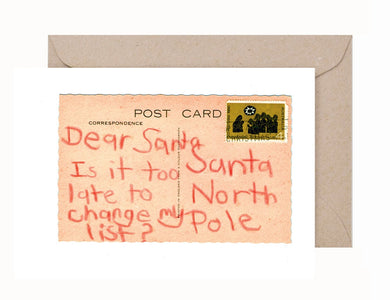 POST CARD
CORRESPONDENCE
Dear Santa
Is it too
late to
change my
list?
Santa
North
Pole
CHRISTMAS